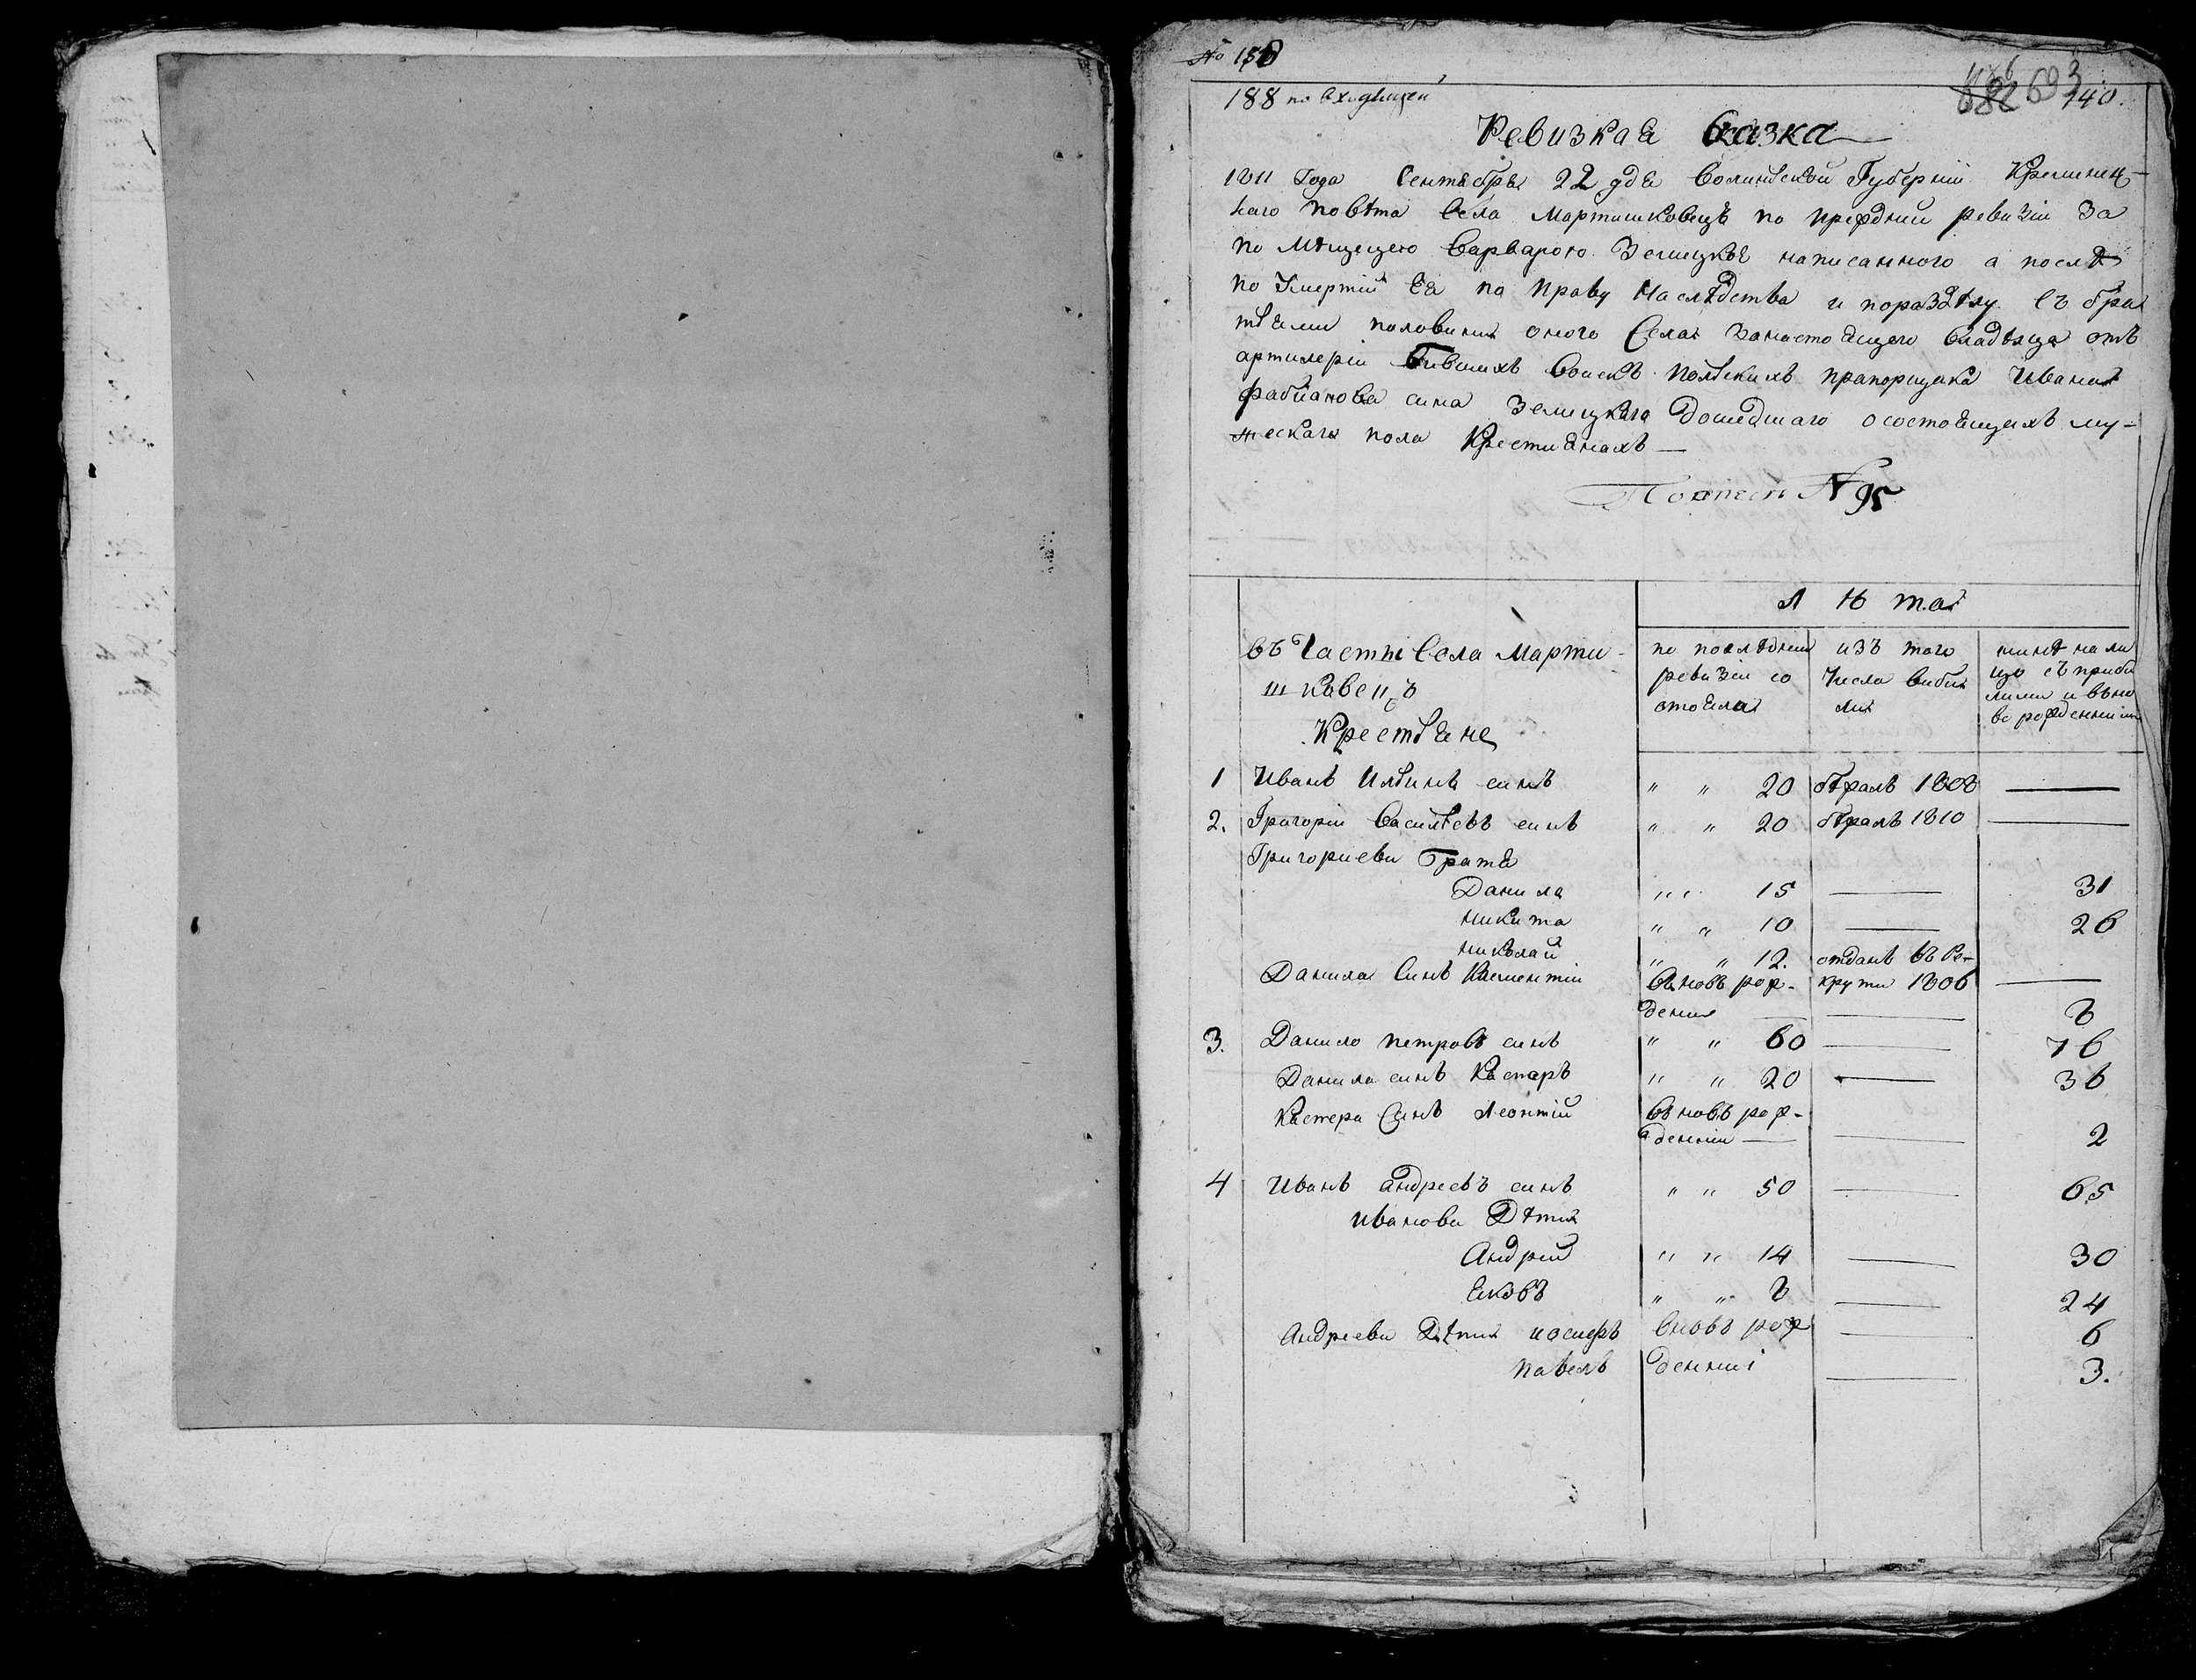 № 158
188 по входящей
693 140.
Ревизкая Сказка
1811 Года Сентября 22 дня Волинской Губерніи Кременец-
каго повѣта Села Мартишковецъ по прежднии ревизіи За
по Мѣщицею Варварою Земецкою написанного а послѣ
по Умертіи Ея по Праву Наслѣдства и поразделу Съ бра
тьями половини оного Села занастоящего Владѣлца отъ
артилеріи Бившихъ Воискъ Полскихъ прапорщика Ивана
Фабіанова сина Земецкаго Дошедшаго осостоящихъ му-
жескаго пола Крестиянахъ —
№ 95
Лѣта
въ Части Села Марти-
шковецъ
Крестьяне
по послѣднеи
ревизіи со
стояла
изъ того
Числа виби
ли
нинѣ на ли
цо съ приби
лими и вно
ворожденними
1 Иванъ Илинъ синъ " " 20 збѣралъ 1808 —
2. Григоріи Василевъ синъ " " 20 збѣралъ 1810 —
Григориеви Братя
Данила " " 15 — 31
Никита " " 10 — 26
Николай " " 12. отданъ въ Ре-
Данила Синъ Клементіи Вновъ рож- крути 1806 —
дении — — 8
3. Данило Петровъ синъ " " 60 — 76
Данила синъ Кастеръ " " 20 — 36
Кастера Синъ Леонтій вновъ рож-
денніи — — 2
4 Иванъ Андреевъ синъ " " 50 — 65
Иванови Дѣти
Андрей " " 14 — 30
Яковъ " " 8 — 24
Андрееви Дѣти иосифъ Вновъ рож — 6
Павелъ денниі — 3.